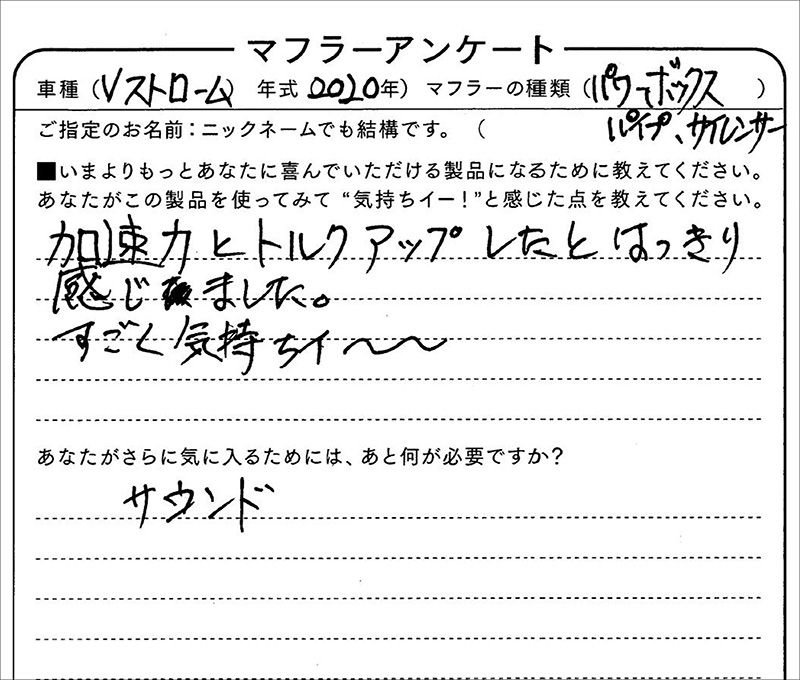 マフラーアンケート
車種(Vストローム 年式 2020年) マフラーの種類(パワーボックス)
ご指定のお名前:ニックネームでも結構です。( パイプ、サイレンサー
■いまよりもっとあなたに喜んでいただける製品になるために教えてください。
あなたがこの製品を使ってみて“気持ちイー!”と感じた点を教えてください。
加速力とトルクアップしたとはっきり
感じました。
すごく気持ちイ〜〜
あなたがさらに気に入るためには、あと何が必要ですか?
サウンド